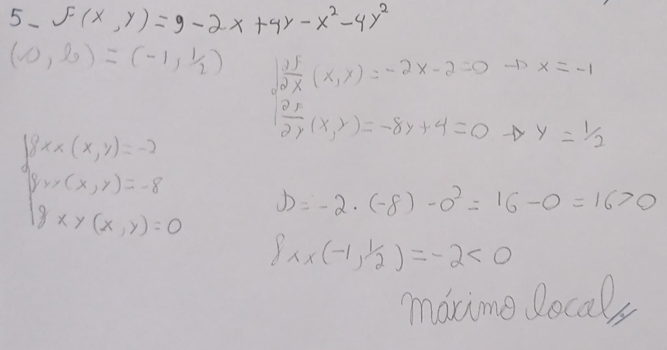 5- f(x,y) = 9 - 2x + 4y - x² - 4y²
(a,b) = (-1, 1/2)
∂f/∂x (x,y) = -2x - 2 = 0 → x = -1
∂f/∂y (x,y) = -8y + 4 = 0 → y = 1/2
fxx(x,y) = -2
fyy(x,y) = -8
fxy(x,y) = 0
D = -2 · (-8) - 0² = 16 - 0 = 16 > 0
fxx(-1, 1/2) = -2 < 0
máximo local //